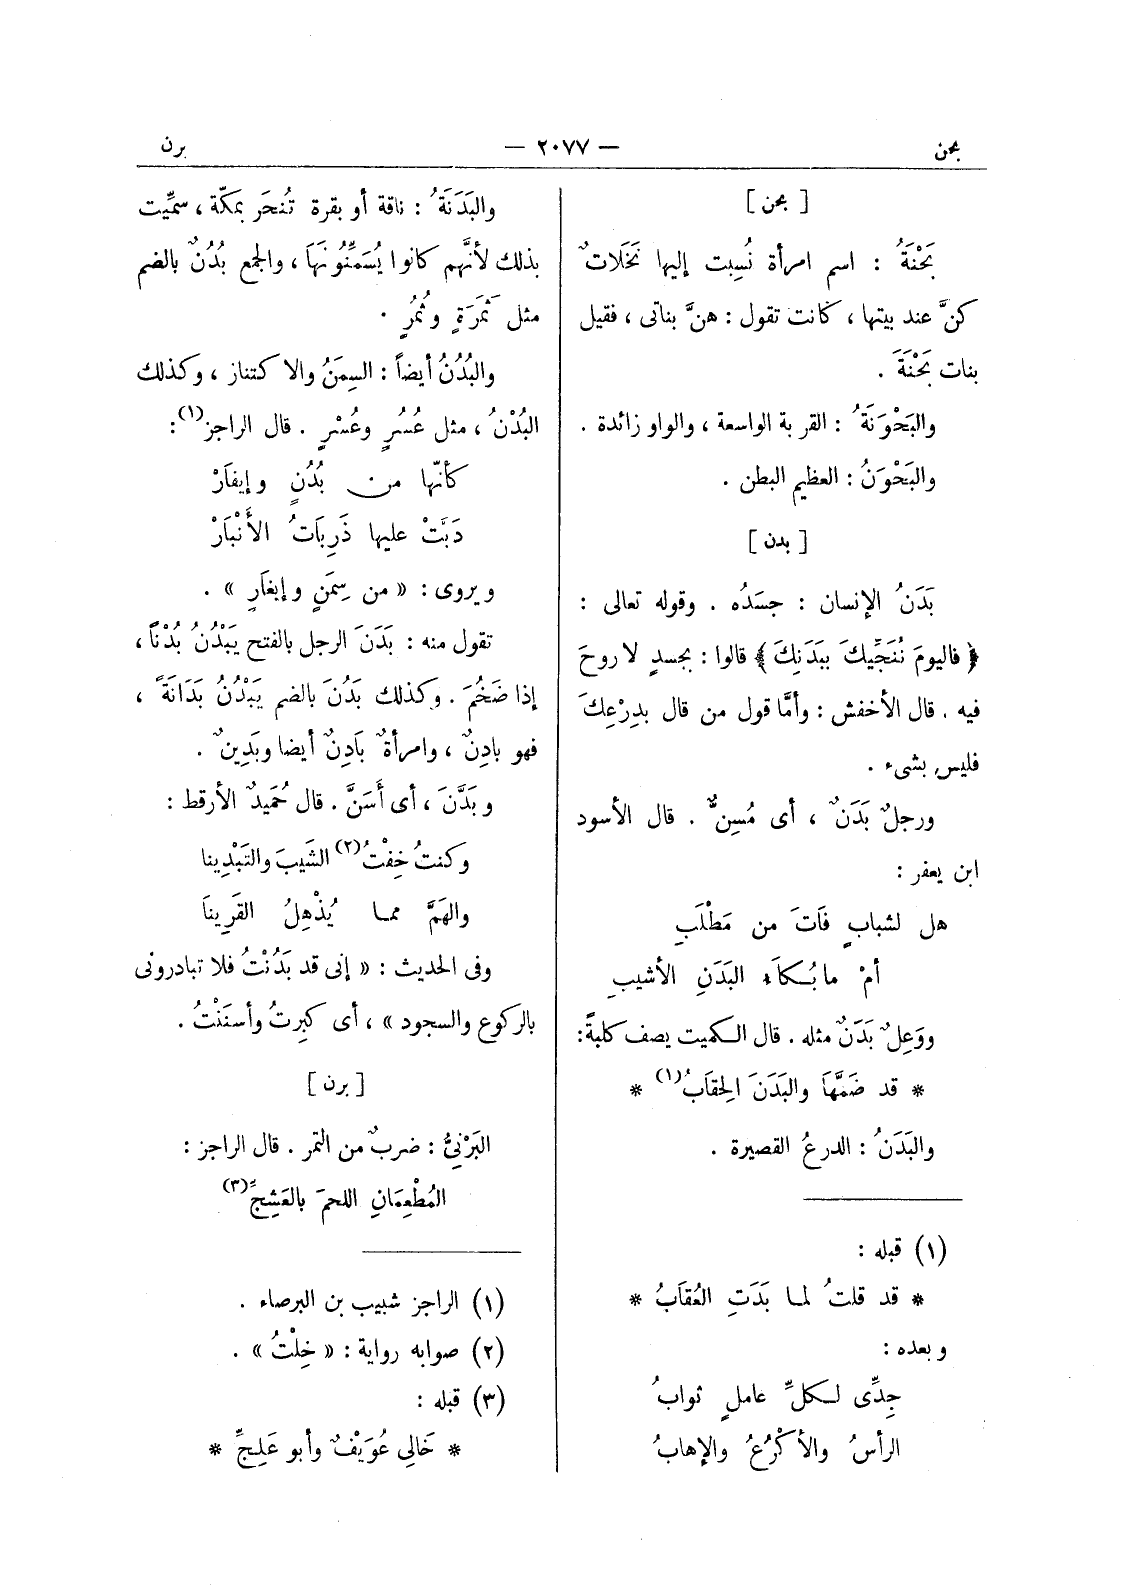 بحن — ٢٠٧٧ — برن
[ بحن ]
بَحْنَةُ : اسم امرأة نُسِبت إليها نَخَلاتٌ
كنَّ عند بيتها ، كانت تقول : هنَّ بناتى ، فقيل
بنات بَحْنَةَ .
والبَحْوَنَةُ : القربة الواسعة ، والواو زائدة .
والبَحْوَنُ : العظيم البطن .
[ بدن ]
بَدَنُ الإنسان : جسَدُه . وقوله تعالى :
﴿ فاليومَ نُنَجِّيكَ ببَدَنِكَ ﴾ قالوا : بجسدٍ لا روحَ
فيه . قال الأخفش : وأمَّا قول من قال بدِرْعِكَ
فليس بشىء .
ورجلٌ بَدَنٌ ، أى مُسِنٌّ . قال الأسود
ابن يعفر :
هل لشبابٍ فَاتَ من مَطْلَبِ
أمْ ما بُكاَء البَدَنِ الأشيبِ
ووَعِلٌ بَدَنٌ مثله . قال الكميت يصف كلبةً :
* قد ضَمَّهَا والبَدَنَ الحِقَابُ(١) *
والبَدَنُ : الدرعُ القصيرة .
(١) قبله :
* قد قلتُ لما بَدَتِ العُقَابُ *
وبعده :
جِدِّى لكلِّ عاملٍ ثوابُ
الرأسُ والأكْرُعُ والإهابُ
والبَدَنَةُ : ناقة أو بقرة تُنحَر بمكّة ، سمِّيت
بذلك لأنَّهم كانوا يُسَمِّنُونَهَا ، والجمع بُدُنٌ بالضم
مثل ثَمَرَةٍ وثُمُرٍ .
والبُدُنُ أيضاً : السِمَنُ والاكتناز ، وكذلك
البُدْنُ ، مثل عُسُرٍ وعُسْرٍ . قال الراجز(١) :
كأنّها من بُدُنٍ وإيفَارْ
دَبَّتْ عليها ذَرِبَاتُ الأَنْبَارْ
ويروى : « من سِمَنٍ وإيغَارٍ » .
تقول منه : بَدَنَ الرجل بالفتح يَبْدُنُ بُدْناً ،
إذا ضَخُمَ . وكذلك بَدُنَ بالضم يَبْدُنُ بَدَانَةً ،
فهو بادِنٌ ، وامرأةٌ بَادِنٌ أيضا وبَدِينٌ .
وبَدَّنَ ، أى أَسَنَّ . قال حُمَيدٌ الأرقط :
وكنتُ خِفْتُ(٢) الشَيبَ والتَبْدِينا
والهَمَّ مما يُذْهِلُ القَرِينَا
وفى الحديث : « إنى قد بَدُنْتُ فلا تبادرونى
بالركوع والسجود » ، أى كبِرتُ وأسنَنْتُ .
[ برن ]
البَرْنِىُّ : ضربٌ من التمر . قال الراجز :
المُطْعِمَانِ اللحمَ بالعَشِجِّ(٣)
(١) الراجز شبيب بن البرصاء .
(٢) صوابه رواية : « خِلْتُ » .
(٣) قبله :
* خَالِى عُوَيْفٌ وأبو عَلِجِّ *